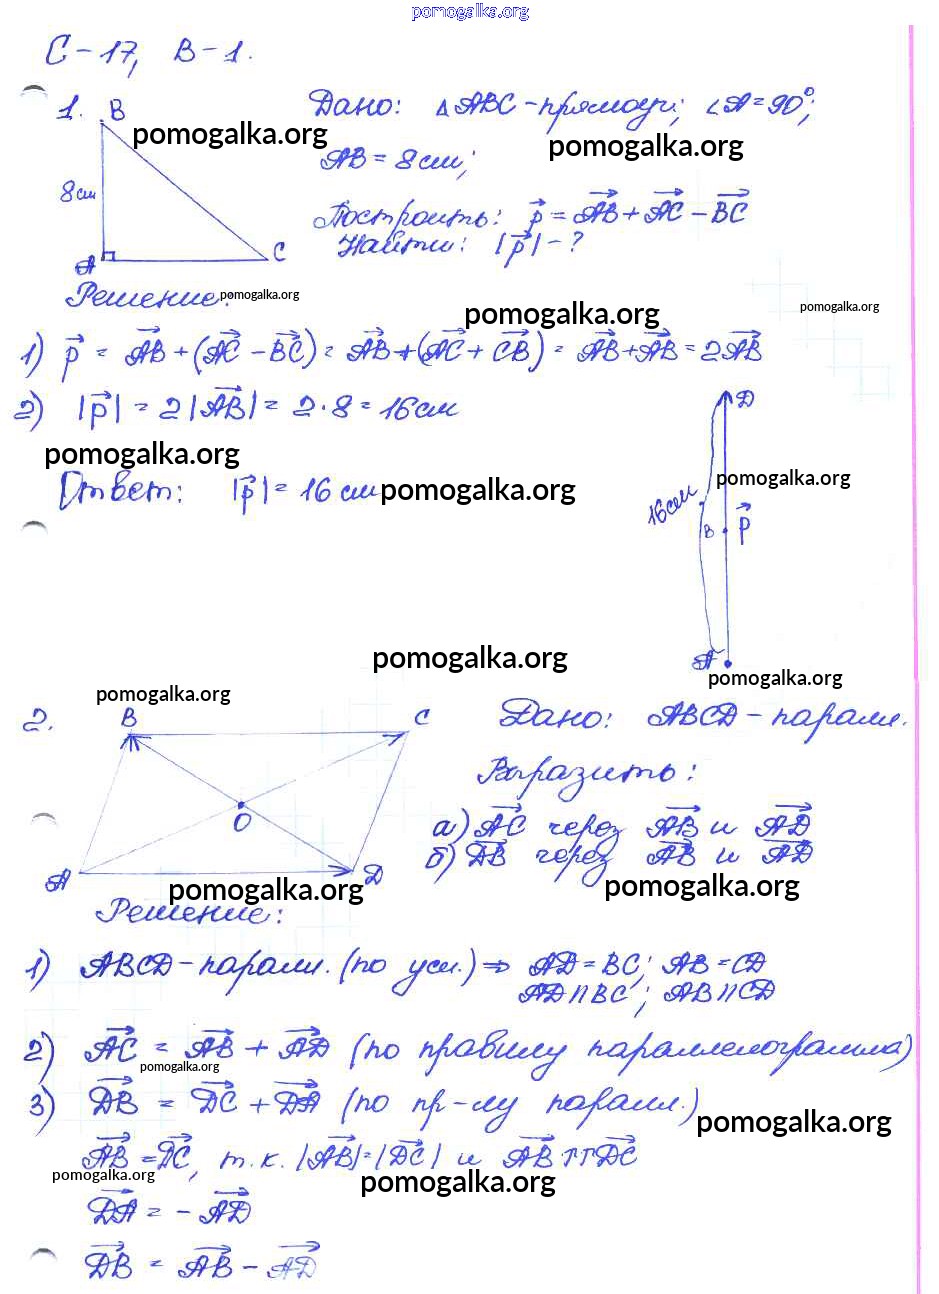 pomogalka.org
С-17, В-1.
1. B
Дано: △ABC-прямоуг; ∠A=90°;
pomogalka.org
pomogalka.org
AB = 8см;
8см
Построить: p⃗ = AB⃗ + AC⃗ − BC⃗
Найти: |p⃗| - ?
A C
Решение:
pomogalka.org
pomogalka.org
pomogalka.org
1) p⃗ = AB⃗ + (AC⃗ − BC⃗) = AB⃗ + (AC⃗ + CB⃗) = AB⃗ + AB⃗ = 2AB⃗
2) |p⃗| = 2|AB⃗| = 2·8 = 16см
D
pomogalka.org
Ответ: |p⃗| = 16 см
pomogalka.org
pomogalka.org
16см
B p⃗
A
pomogalka.org
pomogalka.org
pomogalka.org
2. B C
Дано: ABCD - паралл.
Выразить:
O
а) AC⃗ через AB⃗ и AD⃗
б) DB⃗ через AB⃗ и AD⃗
A D
pomogalka.org
pomogalka.org
Решение:
1) ABCD - паралл. (по усл.) ⇒ AD = BC; AB = CD
AD II BC ; AB II CD
2) AC⃗ = AB⃗ + AD⃗ (по правилу параллелограмма)
pomogalka.org
3) DB⃗ = DC⃗ + DA⃗ (по пр-лу паралл.)
pomogalka.org
AB⃗ = DC⃗, т.к. |AB⃗|=|DC⃗| и AB⃗ ↑↑ DC⃗
pomogalka.org
pomogalka.org
DA⃗ = − AD⃗
DB⃗ = AB⃗ − AD⃗